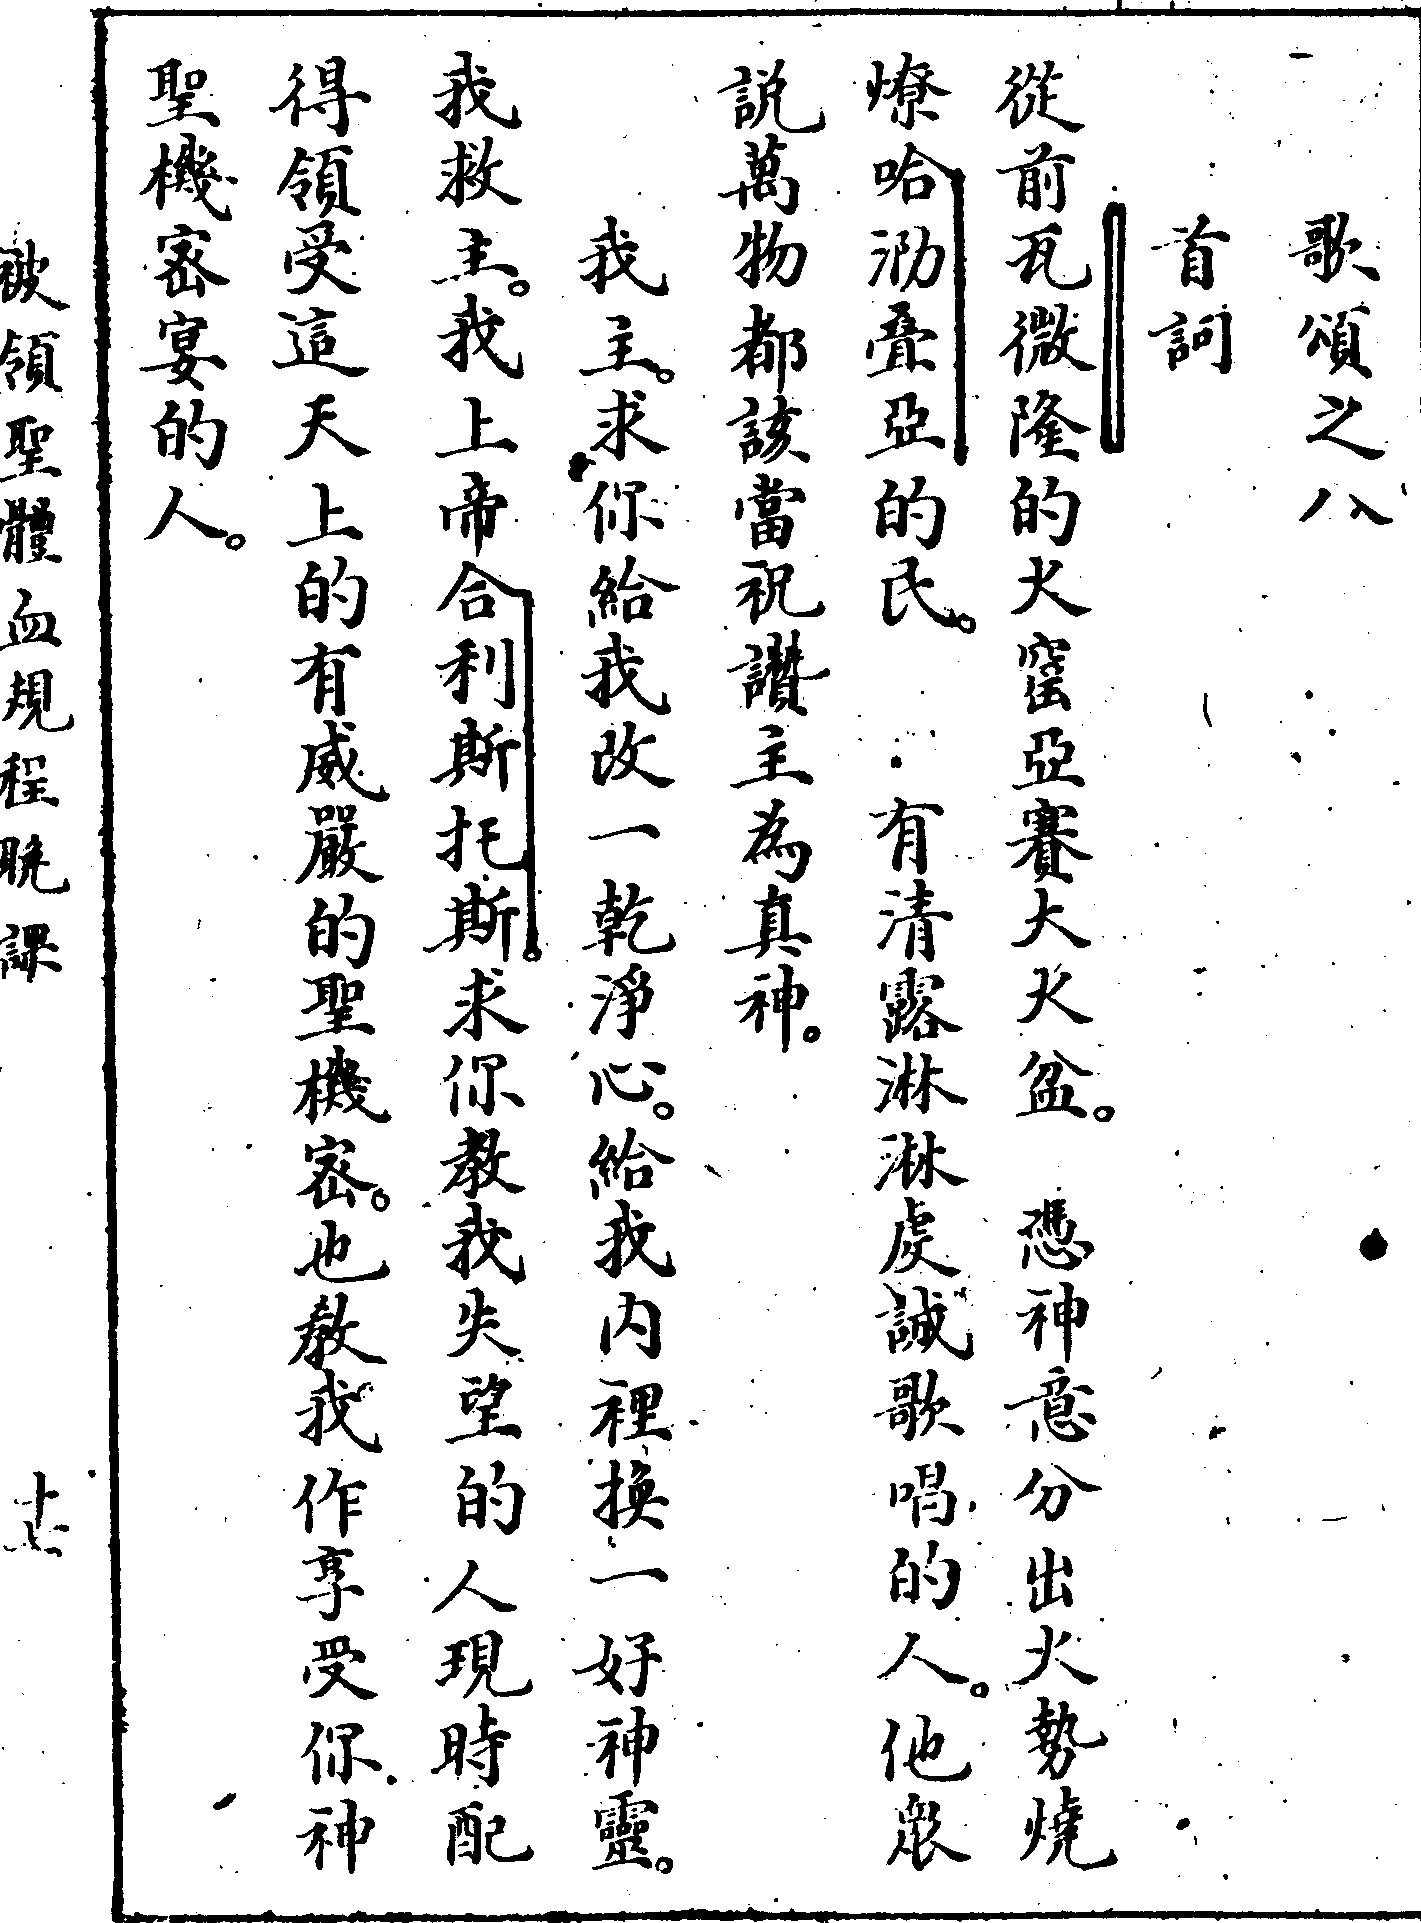 歌頌之八
首詞
從前瓦微隆的火窰亞賽大火盆。憑神意分出火勢燒
燎哈泐疊亞的民。有清露淋淋虔誠歌唱的人。他衆
説萬物都該當祝讚主為真神。
我主。求你給我改一乾淨心。給我內裡換一好神靈。
我救主。我上帝合利斯托斯。求你教我失望的人現時配
得領受這天上的有威嚴的聖機密。也教我作享受你神
聖機密宴的人。
被領聖體血規程晩課
十七